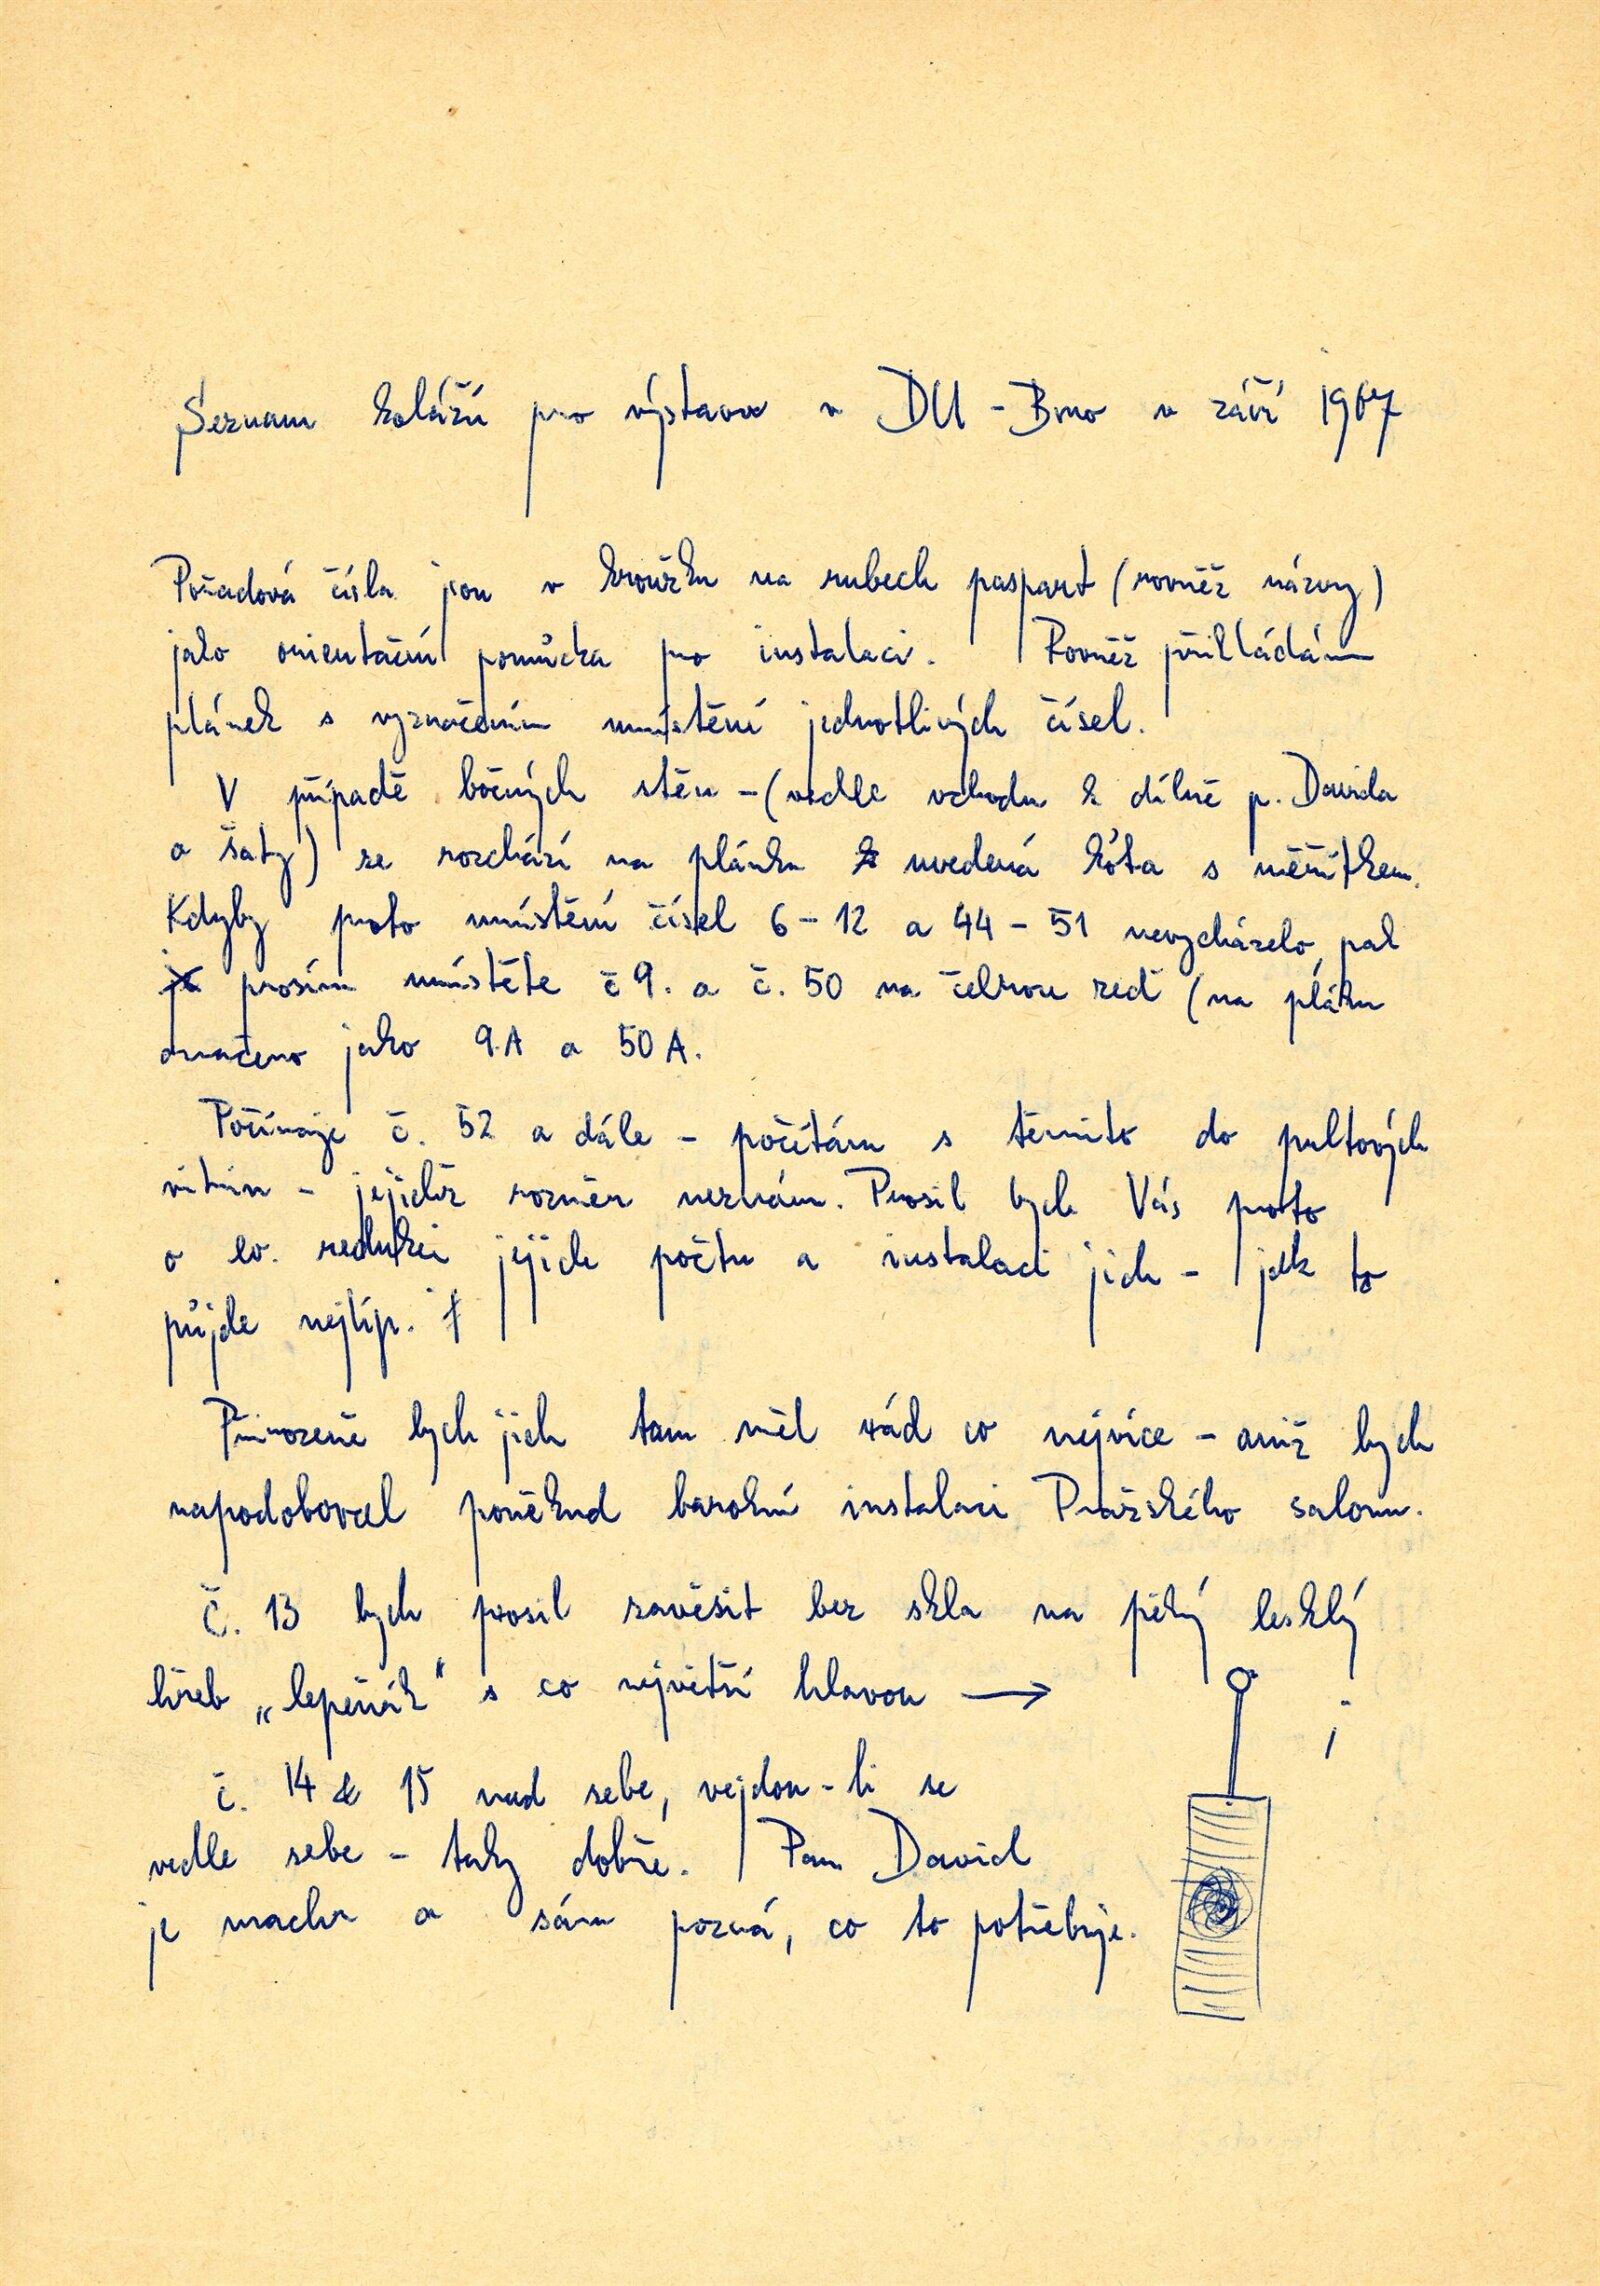 Seznam koláží pro výstavu v DU - Brno v září 1967
Pořadová čísla jsou v kroužku na rubech paspart (rovněž názvy)
jako orientační pomůcka pro instalaci. Rovněž přikládám
plánek s vyznačením umístění jednotlivých čísel.
V případě bočných stěn - (vedle vchodu k dílně p. Davida
a šatny) se rozchází na plánku uvedená kóta s měřítkem.
Kdyby proto umístění čísel 6 - 12 a 44 - 51 nevycházelo, pak
prosím umístěte č 9. a č. 50 na čelnou zeď (na plánku
označeno jako 9.A a 50 A.
Počínaje č. 52 a dále - počítám s těmito do pultových
vitrin - jejichž rozměr neznám. Prosil bych Vás proto
o ev. redukci jejich počtu a instalaci jich - jak to
půjde nejlíp.
Přirozeně bych jich tam měl rád co nejvíce - aniž bych
napodoboval poněkud barokní instalaci Pražského salonu.
Č. 13 bych prosil zavěsit bez skla na pěkný lesklý
hřeb „lepeňák“ s co největší hlavou →
č. 14 & 15 nad sebe, vejdou-li se
vedle sebe - taky dobře. Pan David
je machr a sám pozná, co to potřebuje.